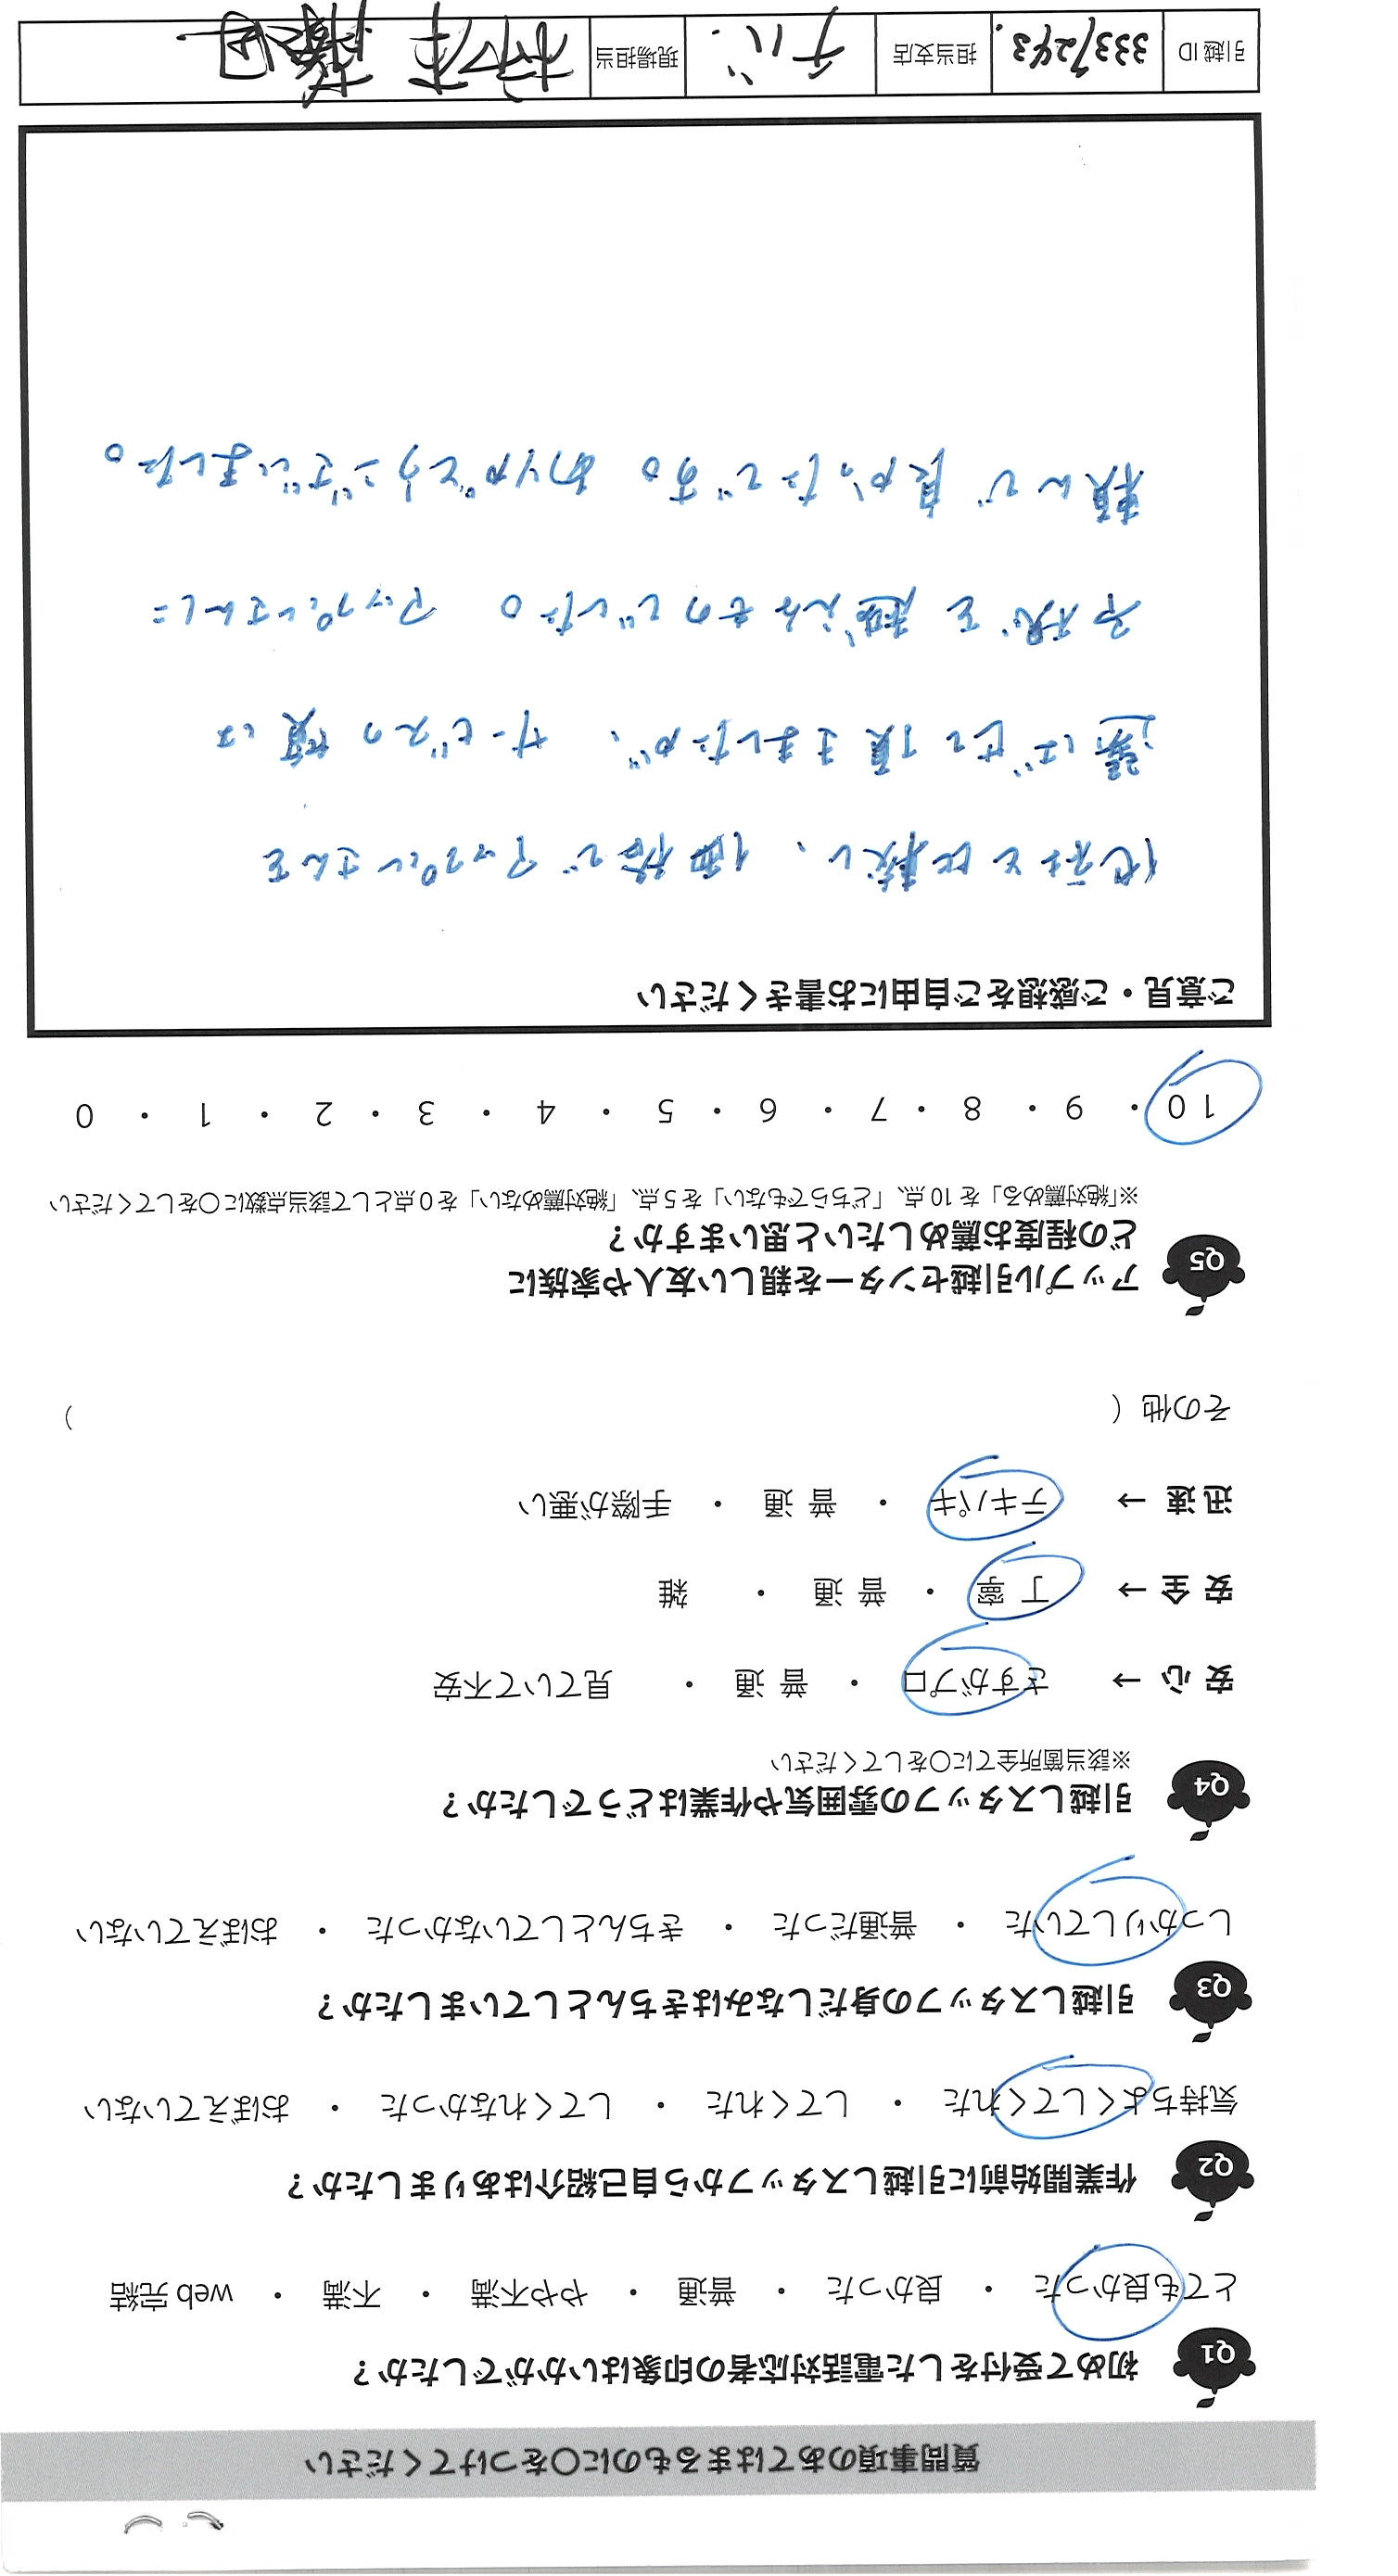 質問事項のあてはまるものに〇をつけてください
Q1 初めて受付をした電話対応者の印象はいかがでしたか？
とても良かった ・ 良かった ・ 普通 ・ やや不満 ・ 不満 ・ web 完結
Q2 作業開始前に引越しスタッフから自己紹介はありましたか？
気持ちよくしてくれた ・ してくれた ・ してくれなかった ・ おぼえていない
Q3 引越しスタッフの身だしなみはきちんとしていましたか？
しっかりしていた ・ 普通だった ・ きちんとしていなかった ・ おぼえていない
Q4 引越しスタッフの雰囲気や作業はどうでしたか？
※該当箇所全てに〇をしてください
安 心 → さすがプロ ・ 普 通 ・ 見ていて不安
安 全 → 丁 寧 ・ 普 通 ・ 雑
迅 速 → テキパキ ・ 普 通 ・ 手際が悪い
その他（ ）
Q5 アップル引越センターを親しい友人や家族に
どの程度お薦めしたいと思いますか？
※「絶対薦める」を 10 点、「どちらでもない」を 5 点、「絶対薦めない」を 0 点として該当点数に〇をしてください
10 ・ 9 ・ 8 ・ 7 ・ 6 ・ 5 ・ 4 ・ 3 ・ 2 ・ 1 ・ 0
ご意見・ご感想をご自由にお書きください
他社と比較し、価格でアップルさんを
選ばせて頂きましたが、サービスの質は
予想を超えるものでした。アップルさんに
頼んで良かったです。ありがとうございました。
引越 ID 3337243 担当支店 チバ 現場担当